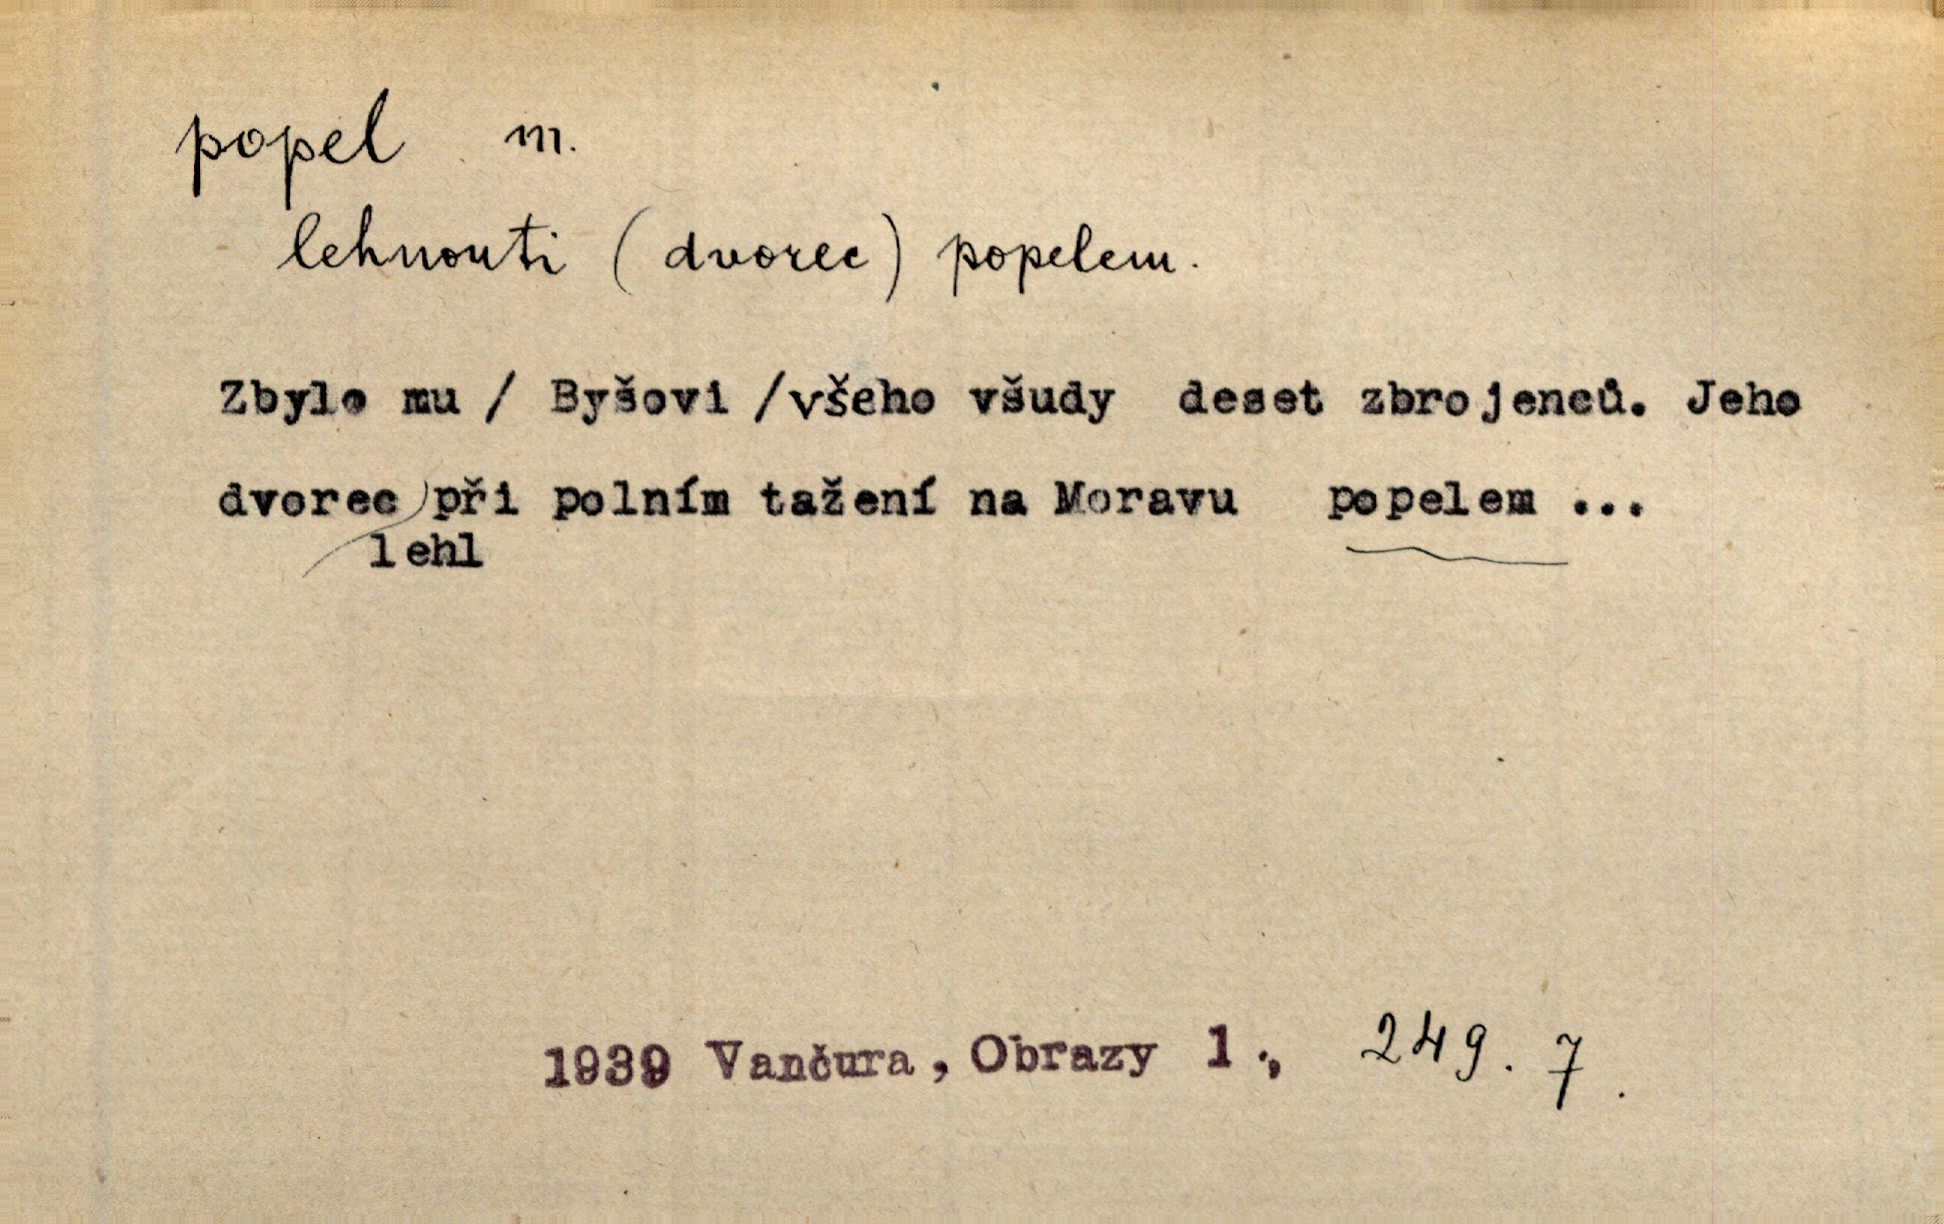 popel m.
lehnouti (dvorec) popelem.
Zbylo mu / Byšovi /všeho všudy deset zbrojenců. Jeho
dvorec při polním tažení na Moravu popelem ...
lehl
1939 Vančura, Obrazy 1., 249. 7.